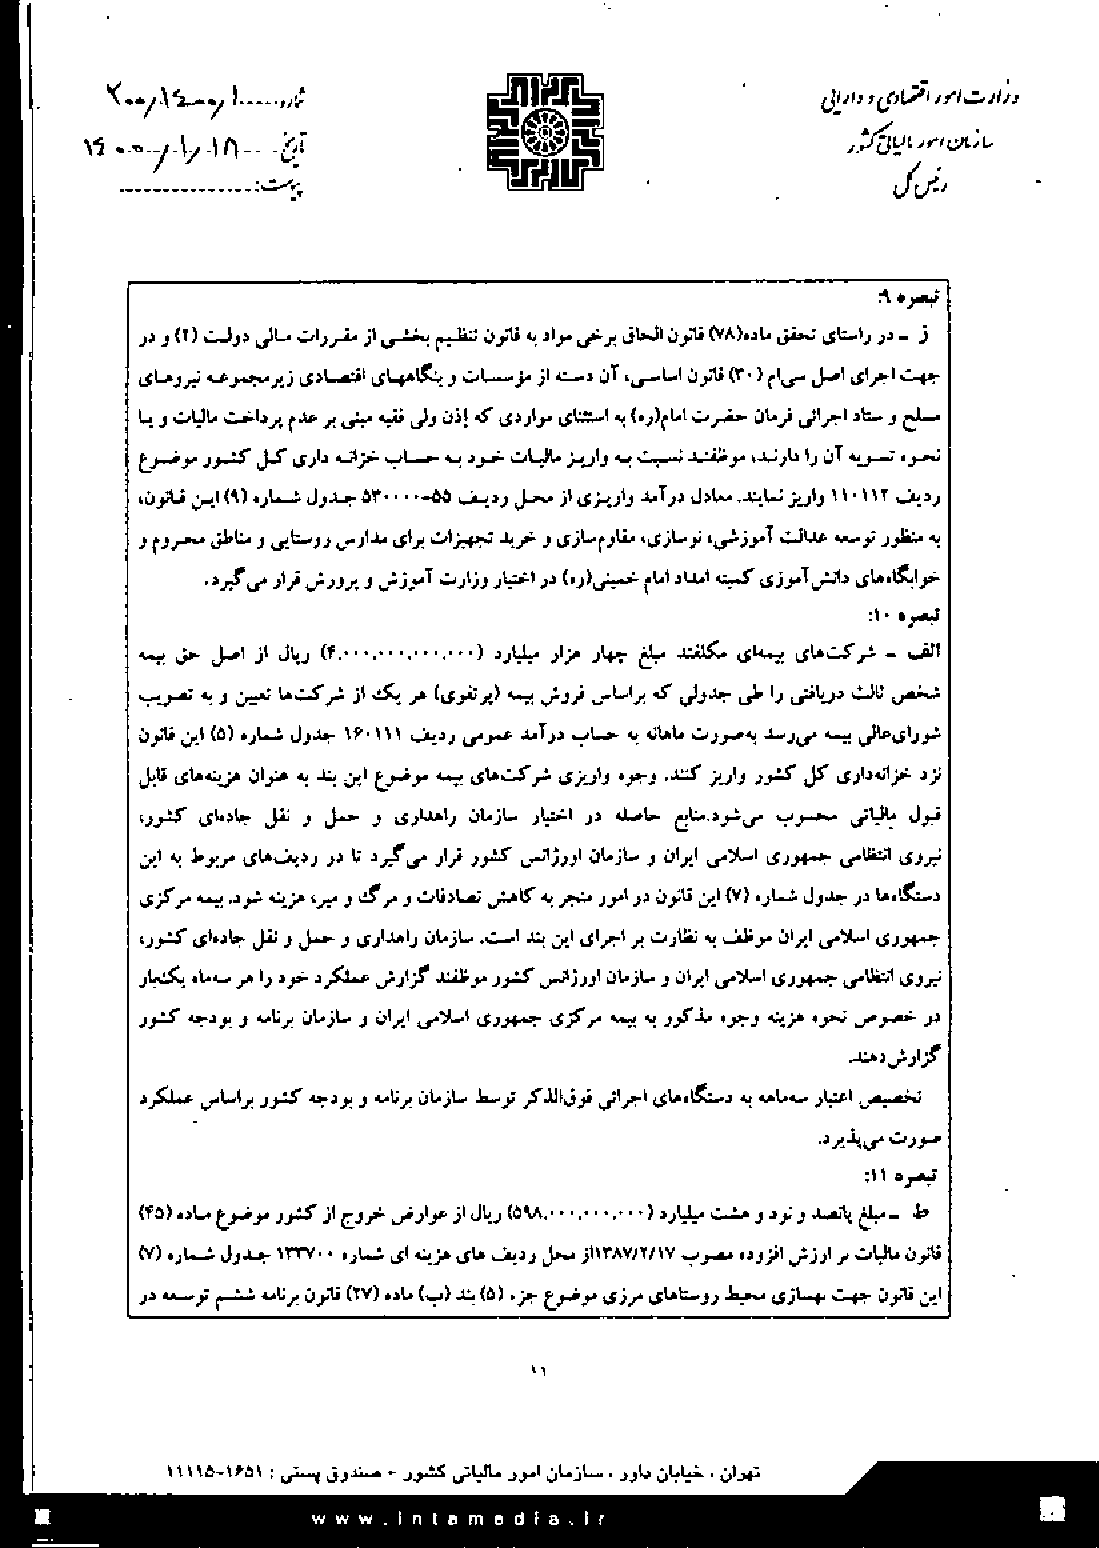 وزارت امور اقتصادی و دارایی
سازمان امور مالیاتی کشور
رئیس کل
شماره: ۲۰۰/۱۴۰۰/۱
تاریخ: ۱۴۰۰/۱/۱۸
پیوست:
تبصره ۹:
ز - در راستای تحقق ماده(۷۸) قانون الحاق برخی مواد به قانون تنظیم بخشی از مقررات مالی دولت (۲) و در
جهت اجرای اصل سی‌ام (۳۰) قانون اساسی، آن دسته از مؤسسات و بنگاههای اقتصادی زیرمجموعه نیروهای
مسلح و ستاد اجرائی فرمان حضرت امام(ره) به استثنای مواردی که إذن ولی فقیه مبنی بر عدم پرداخت مالیات و یا
نحوه تسویه آن را دارند، موظفند نسبت به واریز مالیات خود به حساب خزانه داری کل کشور موضوع
ردیف ۱۱۰۱۱۲ واریز نمایند. معادل درآمد واریزی از محل ردیف ۵۵-۵۳۰۰۰۰ جدول شماره (۹) این قانون،
به منظور توسعه عدالت آموزشی، نوسازی، مقاوم‌سازی و خرید تجهیزات برای مدارس روستایی و مناطق محروم و
خوابگاه‌های دانش‌آموزی کمیته امداد امام خمینی(ره) در اختیار وزارت آموزش و پرورش قرار می‌گیرد.
تبصره ۱۰:
الف - شرکت‌های بیمه‌ای مکلفند مبلغ چهار هزار میلیارد (۴.۰۰۰.۰۰۰.۰۰۰.۰۰۰) ریال از اصل حق بیمه
شخص ثالث دریافتی را طی جدولی که براساس فروش بیمه (پرتفوی) هر یک از شرکت‌ها تعیین و به تصویب
شورای‌عالی بیمه می‌رسد به‌صورت ماهانه به حساب درآمد عمومی ردیف ۱۶۰۱۱۱ جدول شماره (۵) این قانون
نزد خزانه‌داری کل کشور واریز کنند. وجوه واریزی شرکت‌های بیمه موضوع این بند به عنوان هزینه‌های قابل
قبول مالیاتی محسوب می‌شود.منابع حاصله در اختیار سازمان راهداری و حمل و نقل جاده‌ای کشور،
نیروی انتظامی جمهوری اسلامی ایران و سازمان اورژانس کشور قرار می‌گیرد تا در ردیف‌های مربوط به این
دستگاه‌ها در جدول شماره (۷) این قانون در امور منجر به کاهش تصادفات و مرگ و میر، هزینه شود. بیمه مرکزی
جمهوری اسلامی ایران موظف به نظارت بر اجرای این بند است. سازمان راهداری و حمل و نقل جاده‌ای کشور،
نیروی انتظامی جمهوری اسلامی ایران و سازمان اورژانس کشور موظفند گزارش عملکرد خود را هر سه‌ماه یکبار
در خصوص نحوه هزینه وجوه مذکور به بیمه مرکزی جمهوری اسلامی ایران و سازمان برنامه و بودجه کشور
گزارش‌دهند.
تخصیص اعتبار سه‌ماهه به دستگاه‌های اجرائی فوق‌الذکر توسط سازمان برنامه و بودجه کشور براساس عملکرد
صورت می‌پذیرد.
تبصره ۱۱:
ط - مبلغ پانصد و نود و هشت میلیارد (۵۹۸.۰۰۰.۰۰۰.۰۰۰) ریال از عوارض خروج از کشور موضوع ماده (۴۵)
قانون مالیات بر ارزش افزوده مصوب ۱۳۸۷/۲/۱۷از محل ردیف های هزینه ای شماره ۱۳۳۷۰۰ جدول شماره (۷)
این قانون جهت بهسازی محیط روستاهای مرزی موضوع جزء (۵) بند (ب) ماده (۲۷) قانون برنامه ششم توسعه در
۱۱
تهران ، خیابان داور ، سازمان امور مالیاتی کشور - صندوق پستی : ۱۶۵۱-۱۱۱۱۵
www.intamedia.ir